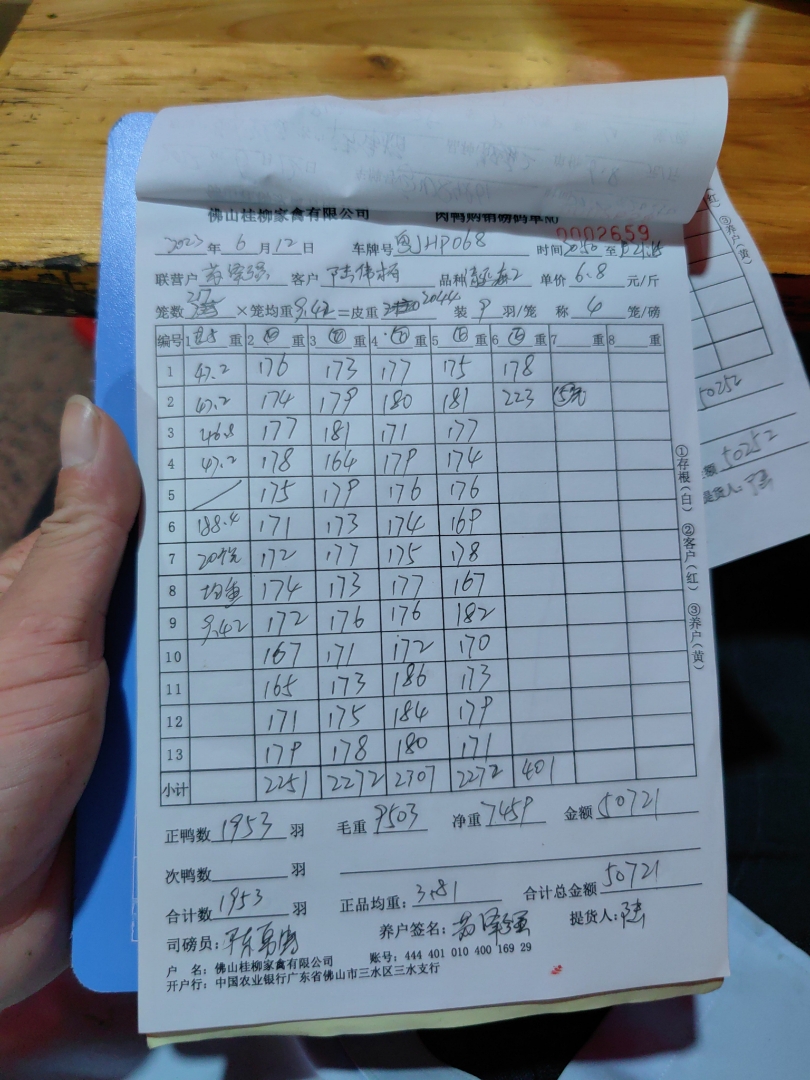 佛山桂柳家禽有限公司 肉鸭购销磅码单NO 0002659
2023 年 6 月 12 日 车牌号 粤JHP068 时间 2050 至
联营户 客户 陆伟 品种 单价 6.8 元/斤
笼数 217 ×笼均重 9.42 =皮重 2044 装 9 羽/笼 称 4 笼/磅
编号 1 重 2 重 3 重 4 重 5 重 6 重 7 重 8 重
1 47.2 176 173 177 175 178
2 47.2 174 179 180 181 223
3 46.8 177 181 171 177
4 47.2 178 164 179 174
5 175 179 176 176
6 188.4 171 173 174 169
7 20 172 177 175 178
8 均重 174 173 177 167
9 9.42 172 176 176 182
10 167 171 172 170
11 165 173 186 173
12 171 175 184 179
13 179 178 180 171
小计 2251 2272 2307 2272 401
正鸭数 1953 羽 毛重 9503 净重 7459 金额 50721
次鸭数 羽
合计数 1953 羽 正品均重: 3.81 合计总金额 50721
司磅员: 养户签名: 提货人: 陆
户 名: 佛山桂柳家禽有限公司 账号: 444 401 010 400 169 29
开户行: 中国农业银行广东省佛山市三水区三水支行
①存根(白) ②客户(红) ③养户(黄)
③养户(黄)
50252
额 50252
提货人: 陆